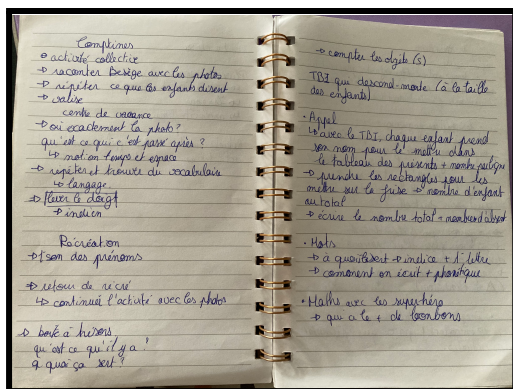 Comptines
activité collective
→ raconter Besège avec les photos
→ répéter ce que les enfants disent
→ valise
centre de vacance
→ où exactement la photo?
qu'est ce qui c'est passé après?
↳ notion temps et espace
→ répéter et trouver du vocabulaire
↳ langage
→ lever le doigt
→ indien
Récréation
→ 1er son des prénoms
→ retour de récré
↳ continuer l'activité avec les photos
→ boîte à trésors
qu'est ce qu'il y a?
à quoi ça sert?
→ compter les objets (5)
TBI qui descend-monte (à la taille
des enfants)
• Appel
↳ avec le TBI, chaque enfant prend
son nom pour le mettre dans
le tableau des présents + montre
→ prendre les rectangles pour les
mettre sur la frise → nombre d'enfant
au total
→ écrire le nombre total + nombre d'absent
• Mots
→ à quoi ils sert → indice + 1e lettre
→ comment on écrit + phonétique
• Maths avec les superhéro
→ qui a le + de bonbons